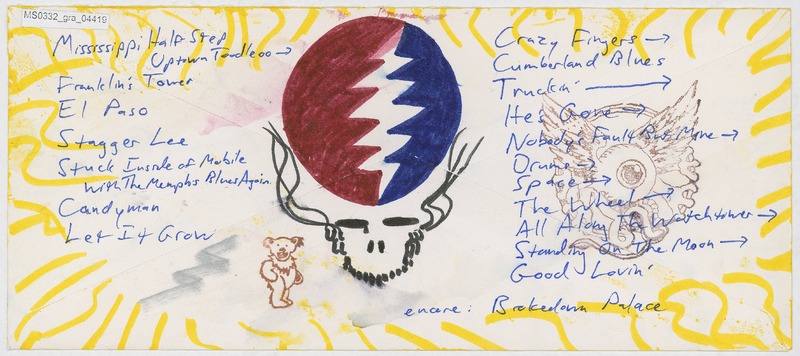 MS0332_gra_04419
Mississippi Half Step
Uptown Toodleoo →
Franklin's Tower
El Paso
Stagger Lee
Stuck Inside of Mobile
with The Memphis Blues Again
Candyman
Let It Grow
Crazy Fingers →
Cumberland Blues
Truckin' →
He's Gone →
Nobody's Fault But Mine →
Drums →
Space →
The Wheel →
All Along The Watchtower →
Standing On The Moon →
Good Lovin'
encore: Brokedown Palace